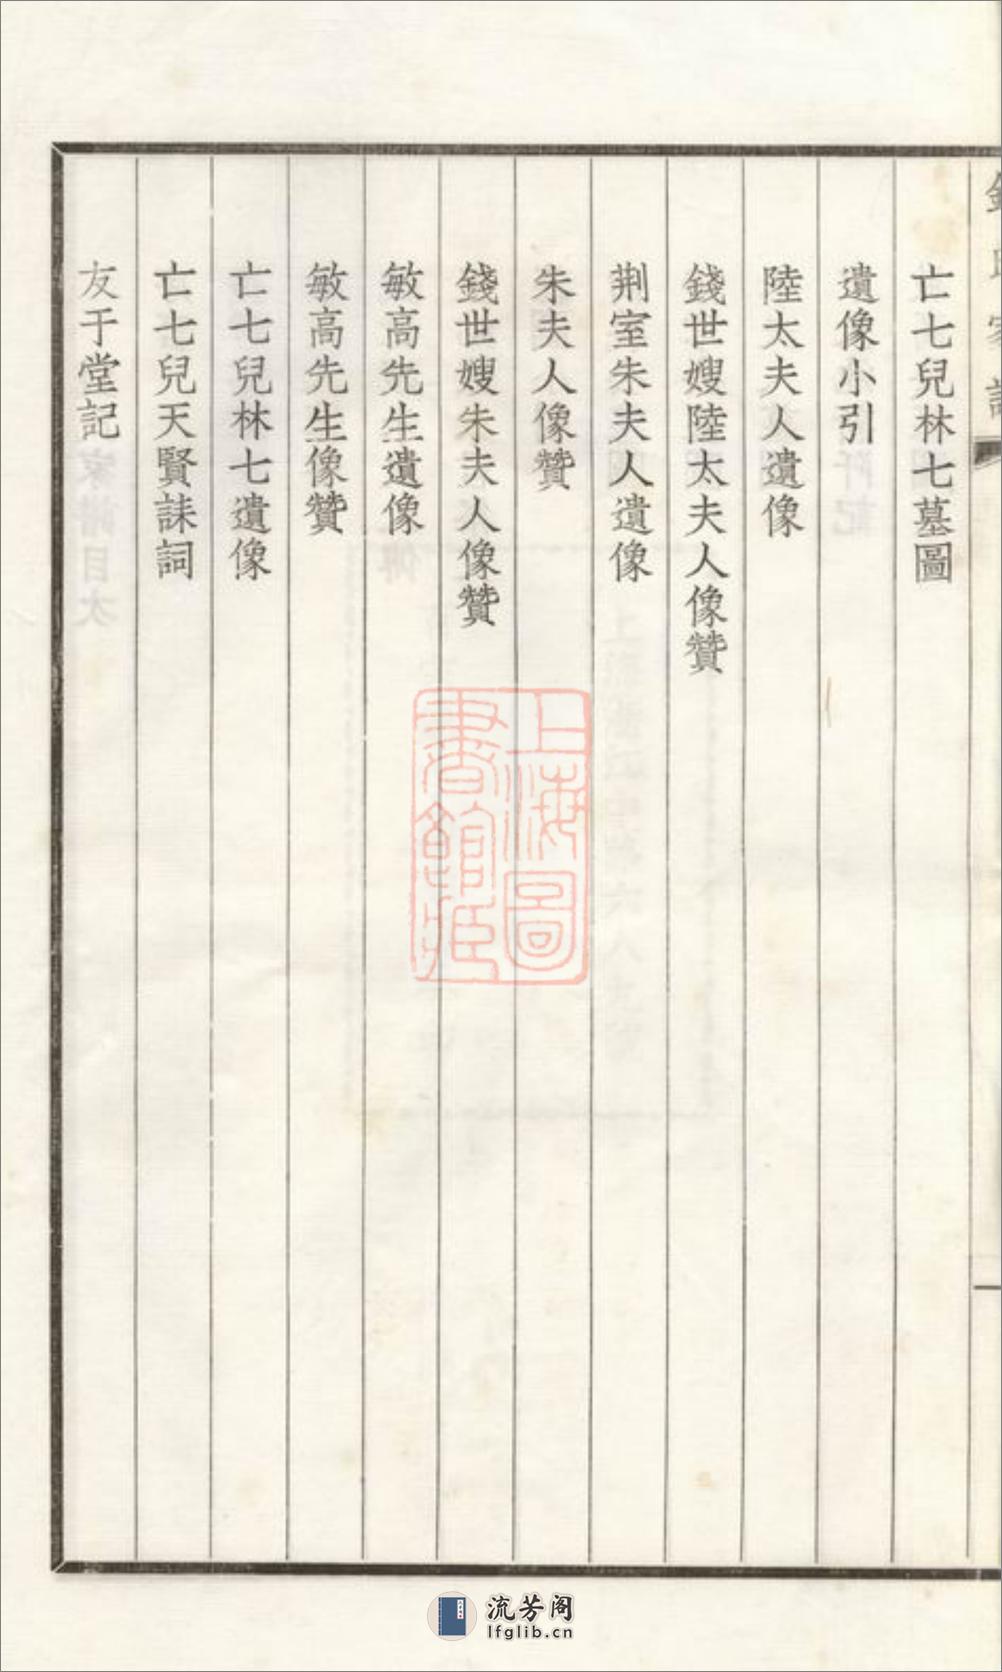 亡七兒林七墓圖
遺像小引
陸太夫人遺像
錢世嫂陸太夫人像贊
荆室朱夫人遺像
朱夫人像贊
錢世嫂朱夫人像贊
敏高先生遺像
敏高先生像贊
亡七兒林七遺像
亡七兒天賢誄詞
友于堂記
上海圖
書館藏
流芳阁
lfglib.cn